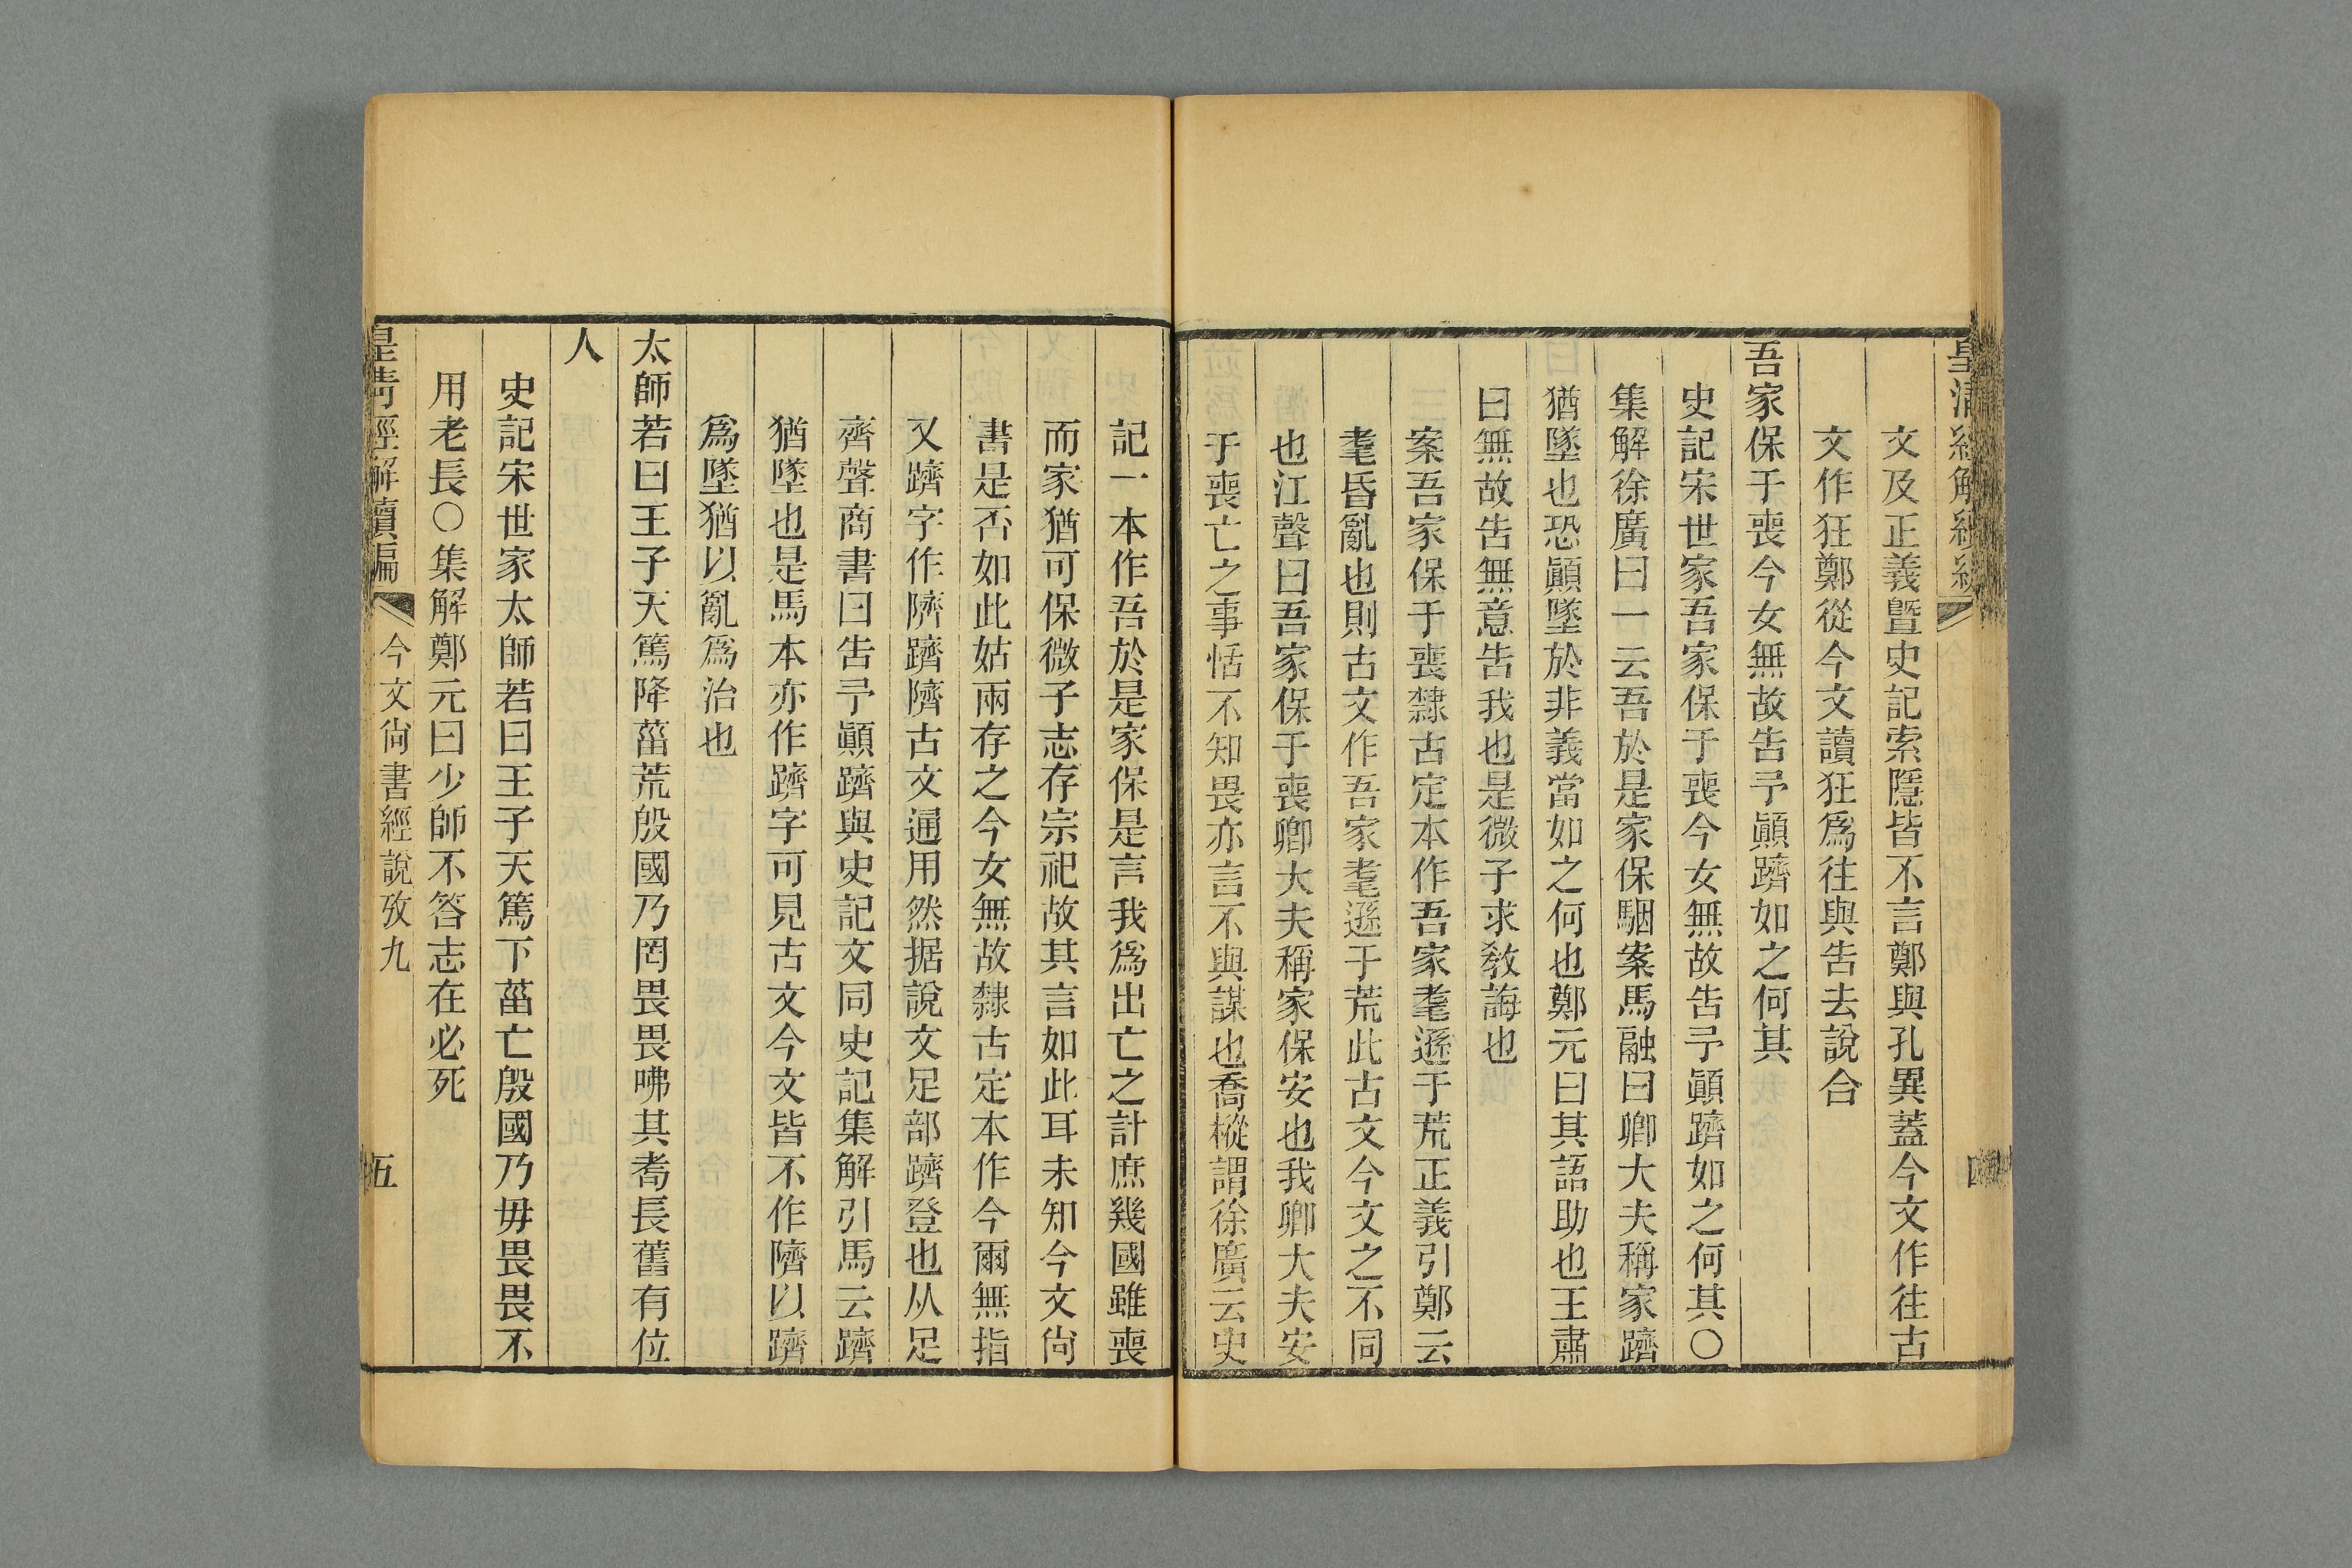 文及正義曁史記索隱皆不言鄭與孔異蓋今文作往古
文作狂鄭從今文讀狂爲往與告去說合
吾家保于喪今女無故告予顚躋如之何其
史記宋世家吾家保于喪今女無故告予顚躋如之何其○
集解徐廣曰一云吾於是家保駰案馬融曰卿大夫稱家躋
猶墜也恐顚墜於非義當如之何也鄭元曰其語助也王肅
曰無故告無意告我也是微子求敎誨也
案吾家保于喪隸古定本作吾家耄遜于荒正義引鄭云
耄昏亂也則古文作吾家耄遜于荒此古文今文之不同
也江聲曰吾家保于喪卿大夫稱家保安也我卿大夫安
于喪亡之事恬不知畏亦言不與謀也喬樅謂徐廣云史
記一本作吾於是家保是言我爲出亡之計庶幾國雖喪
而家猶可保微子志存宗祀故其言如此耳未知今文尙
書是否如此姑兩存之今女無故隸古定本作今爾無指
又躋字作隮躋隮古文通用然据說文足部躋登也从足
齊聲商書曰告予顚躋與史記文同史記集解引馬云躋
猶墜也是馬本亦作躋字可見古文今文皆不作隮以躋
爲墜猶以亂爲治也
太師若曰王子天篤降菑荒殷國乃罔畏畏咈其耉長舊有位
人
史記宋世家太師若曰王子天篤下菑亡殷國乃毋畏畏不
用老長○集解鄭元曰少師不答志在必死
皇淸經解續編 今文尙書經說攷九 五